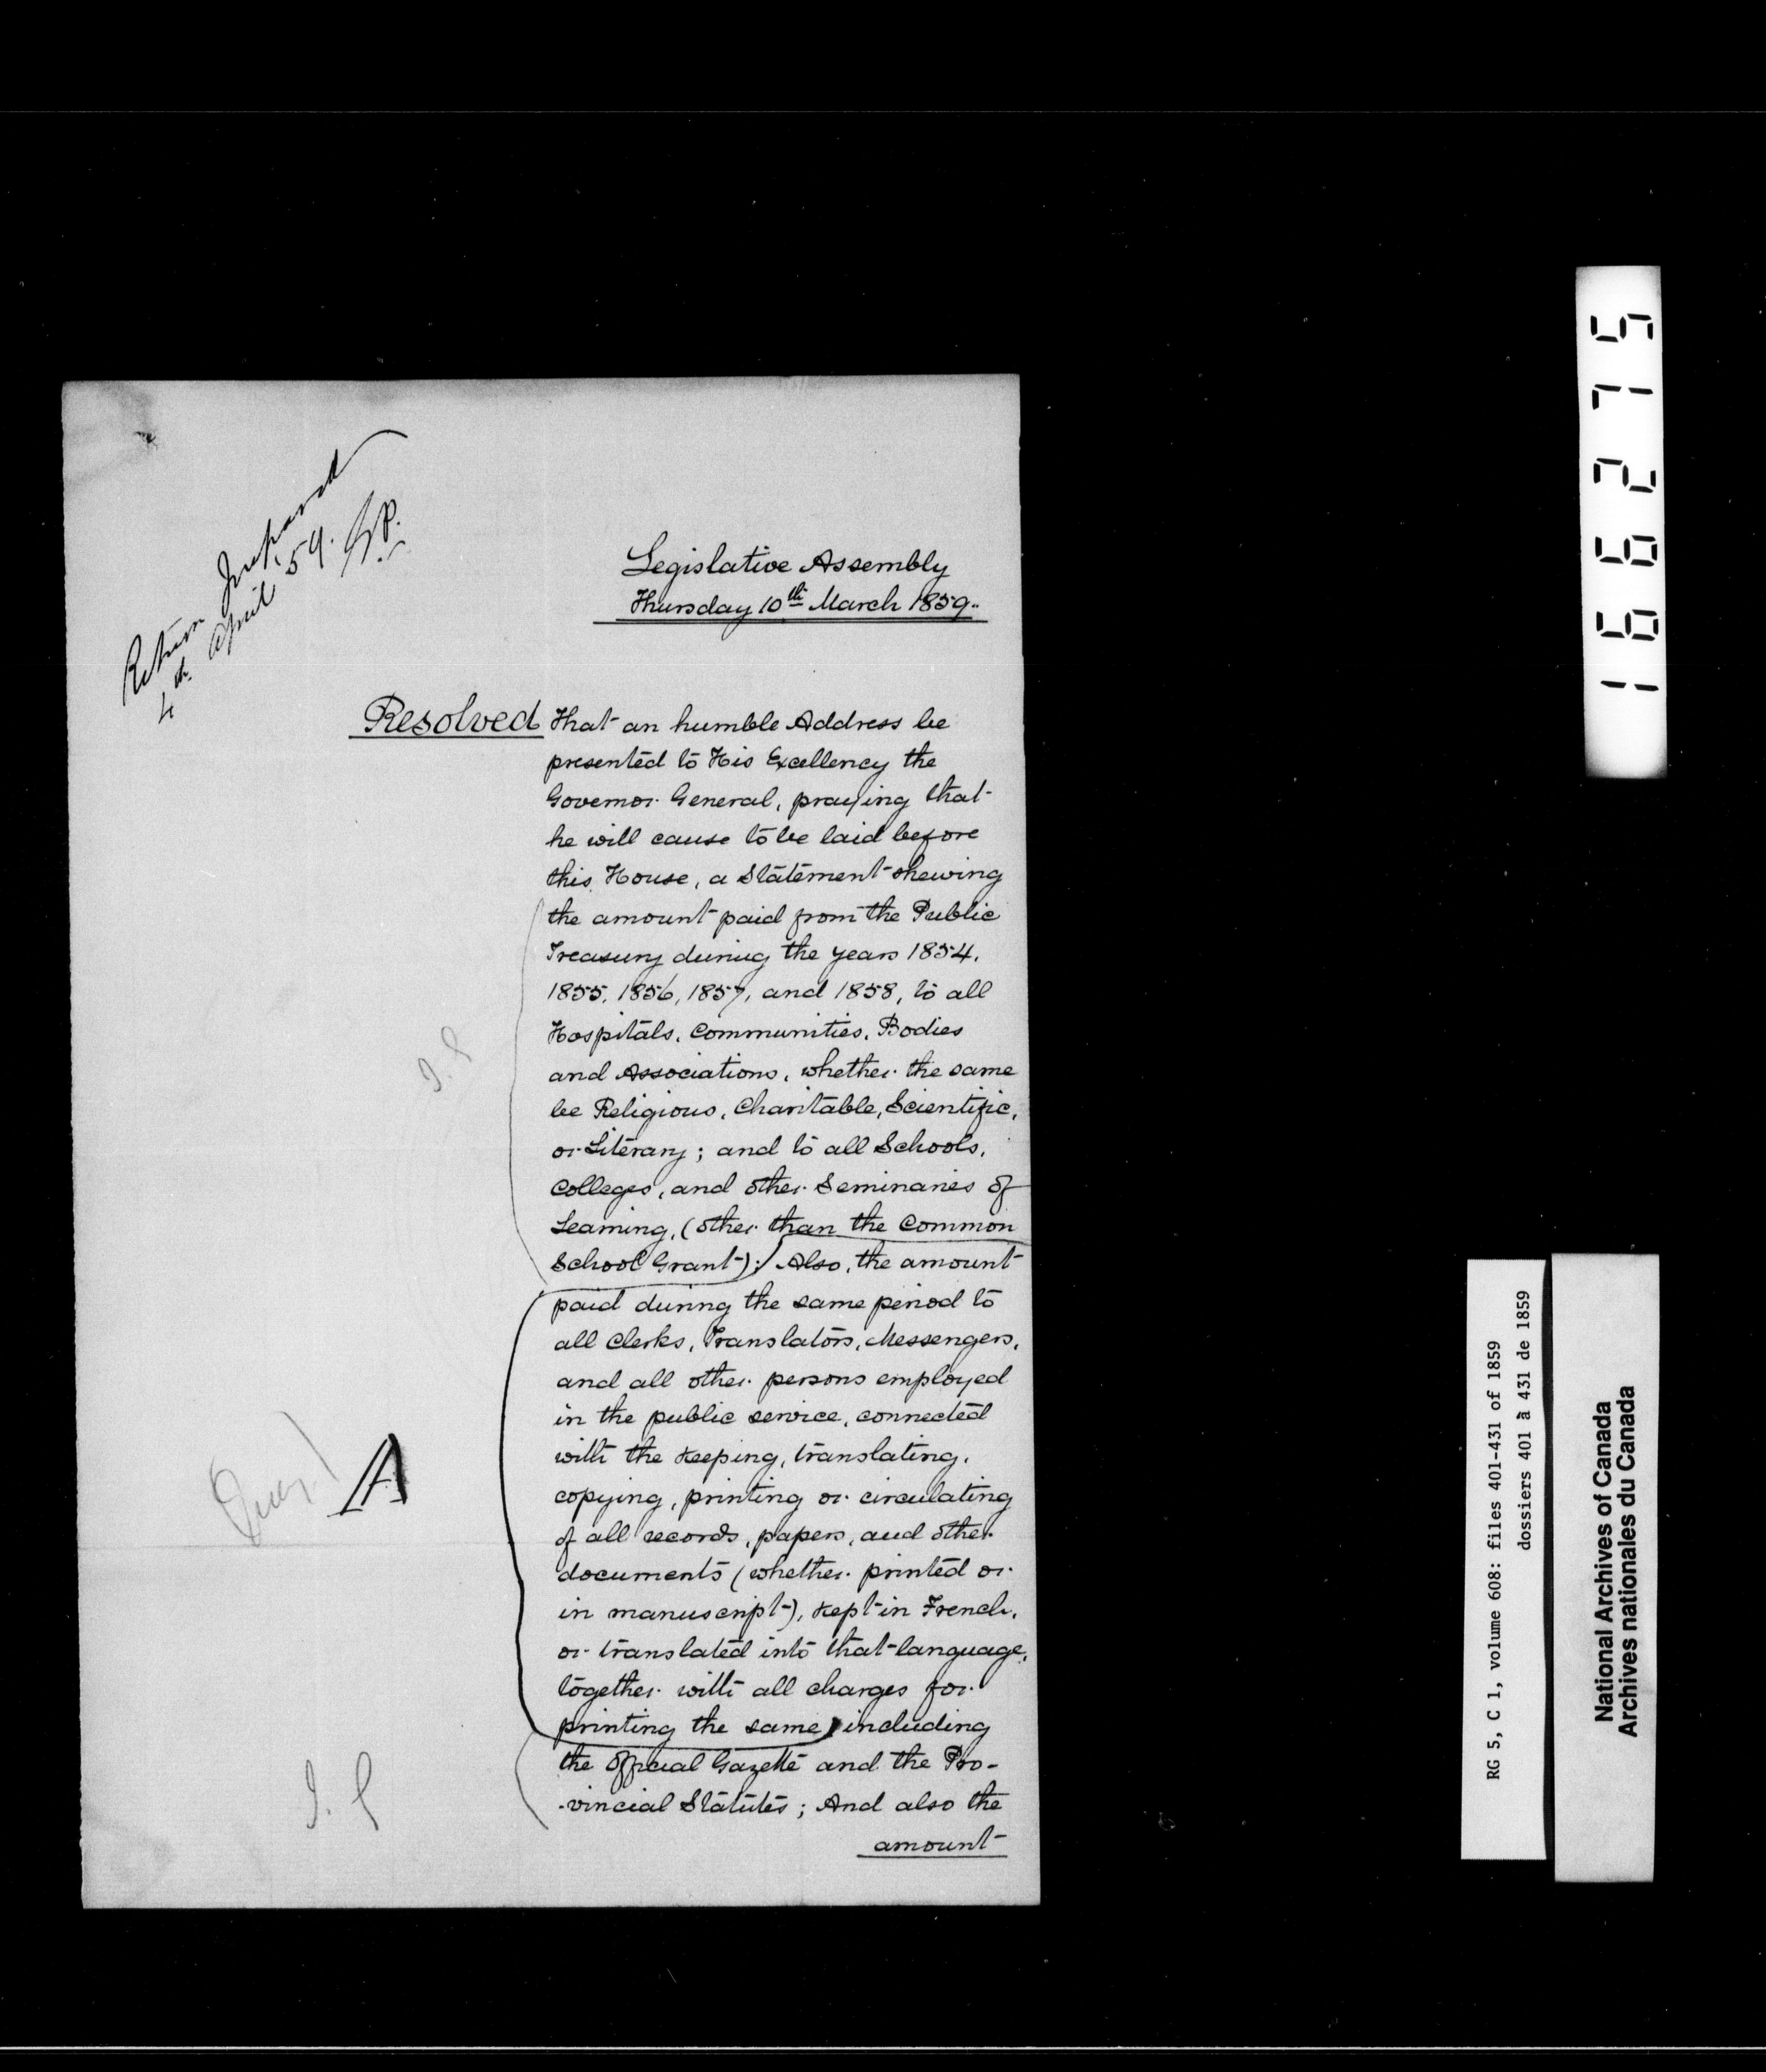 Return Prepared
4th April '59.
Legislative Assembly
Thursday 10th March 1859.
Resolved That an humble Address be
presented to His Excellency the
Governor General, praying that
he will cause to be laid before
this House, a Statement shewing
the amount paid from the Public
Treasury during the years 1854,
1855, 1856, 1857, and 1858, to all
Hospitals, Communities, Bodies
and Associations, whether the same
be Religious, Charitable, Scientific,
or Literary; and to all Schools,
Colleges, and other Seminaries of
Learning, (other than the Common
School Grant); Also, the amount
paid during the same period to
all Clerks, Translators, Messengers,
and all other persons employed
in the public service, connected
with the keeping, translating,
copying, printing or circulating
of all records, papers, and other
documents (whether printed or
in manuscript), kept in French,
or translated into that language,
together with all charges for
printing the same, including
the Official Gazette and the Pro-
-vincial Statutes; And also the
amount
A
166275
RG 5, C 1, volume 608: files 401-431 of 1859
dossiers 401 à 431 de 1859
National Archives of Canada
Archives nationales du Canada